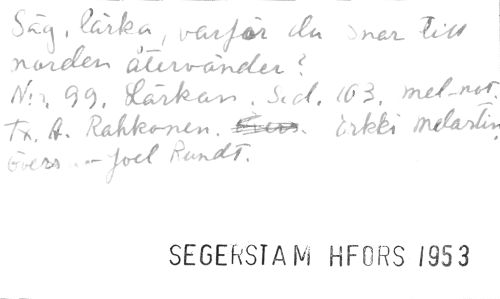 Säg, lärka, varför du snar till
norden återvänder?
N:r 99. Lärkan. Sid. 103. mel-not.
Tx. A. Rahkonen. Erkki Melartin
Övers. - Joel Rundt.
SEGERSTAM HFORS 1953